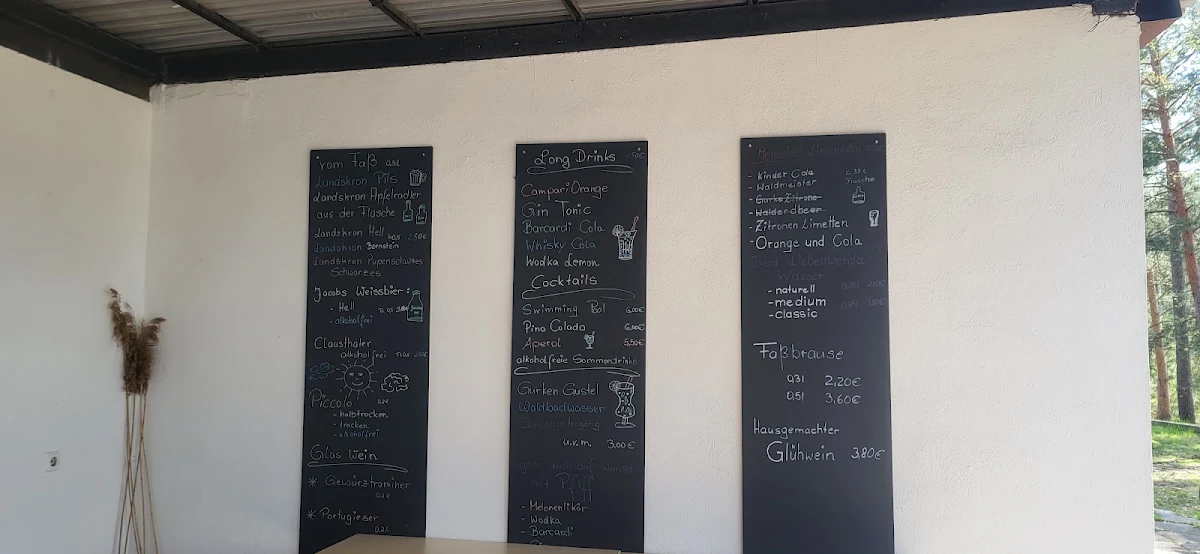 vom Faß
Landskron Pils
Landskron Apfelradler
aus der Flasche
Landskron Hell
Landskron Bernstein
Landskron Pupenschultzes
Schwarzes
Jacobs Weissbier:
- Hell
- alkoholfrei
Clausthaler
alkoholfrei
Piccolo
- halbtrocken
- trocken
- alkoholfrei
Glas Wein
* Gewürztraminer
* Portugieser
Long Drinks
Campari Orange
Gin Tonic
Barcardi Cola
Whisky Cola
Wodka Lemon
Cocktails
Swimming Pool 6,00€
Pina Colada 6,00€
Aperol 5,50€
alkoholfreie Sommerdrinks
Gurken Gustel
Waldbadwasser
Sonnenuntergang
u.v.m. 3,00€
gern auch auf Wunsch
mit Pfiff
- Melonenlikör
- Wodka
- Barcardi
Limonaden
- Kinder Cola
- Waldmeister Flasche
- Gurke Zitrone
- Walderdbeer
- Zitronen Limetten
- Orange und Cola
Bad Liebenwerda
Wasser
- naturell
- medium
- classic
Faßbrause
0,3l 2,20€
0,5l 3,60€
Hausgemachter
Glühwein 3,80€